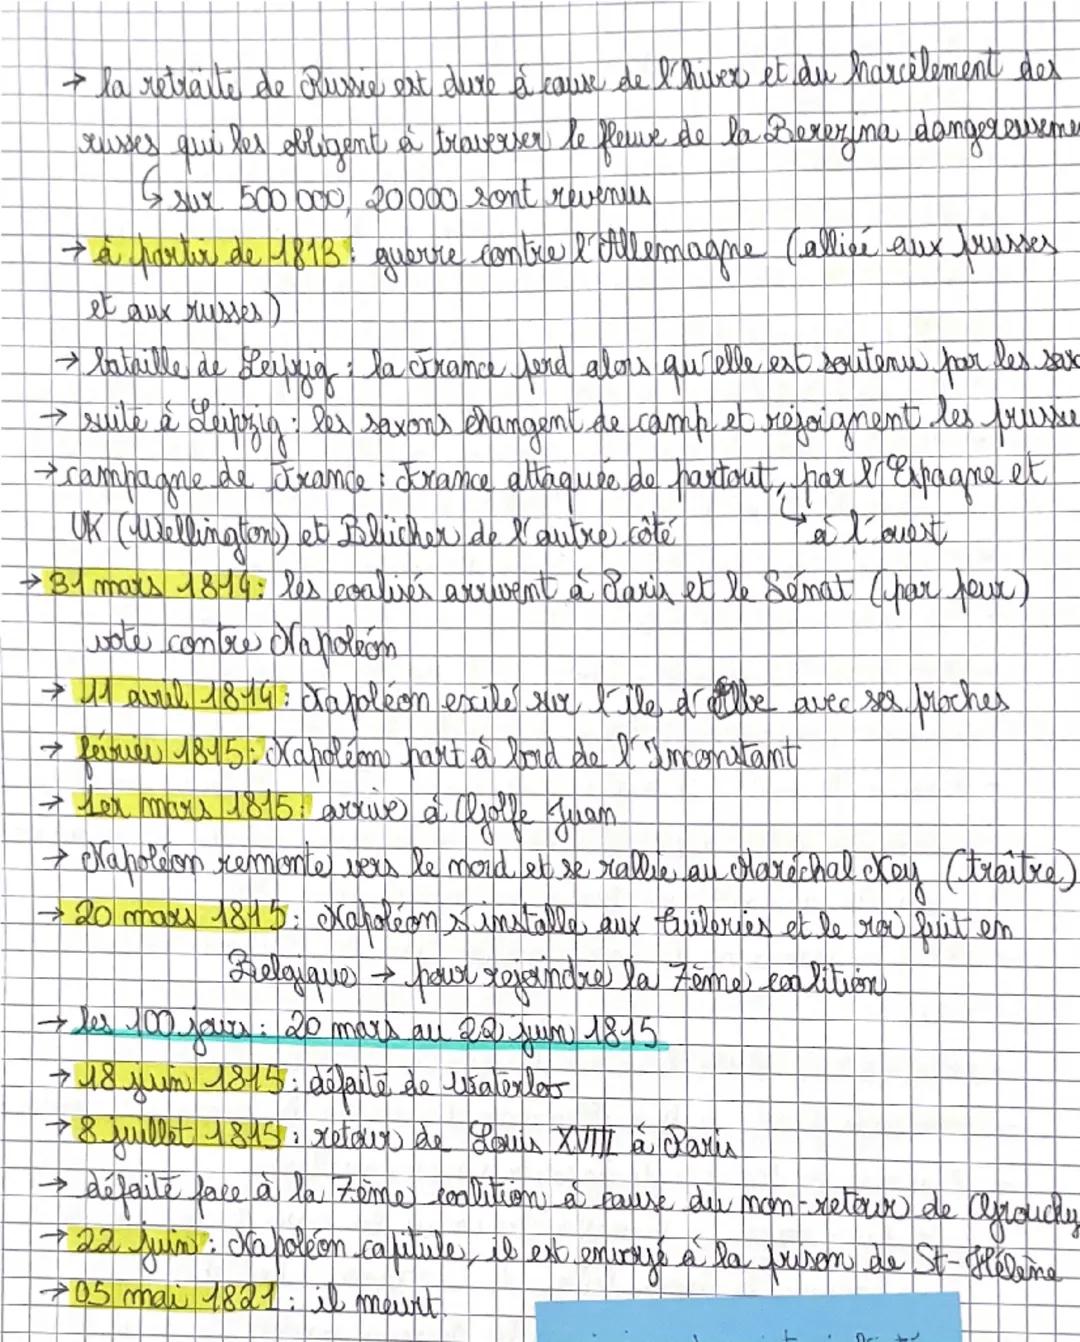 → la retraite de Russie est dure à cause de l'hiver et du harcèlement des
russes qui les obligent à traverser le fleuve de la Berezina dangereuseme
↳ sur 500 000, 20 000 sont revenus
→ à partir de 1813 : guerre contre l'Allemagne (alliée aux prusses
et aux russes)
→ bataille de Leipzig : la France perd alors qu'elle est soutenu par les sax
→ suite à Leipzig : les saxons changent de camp et rejoignent les prusse
→ campagne de France : France attaquée de partout, par l'Espagne et
UK (Wellington) et Blücher de l'autre côté ↳ à l'ouest
→ 31 mars 1814 : les coalisés arrivent à Paris et le Sénat (par peur)
vote contre Napoléon
→ 11 avril 1814 : Napoléon exilé sur l'île d'Elbe avec ses proches
→ février 1815 : Napoléon part à bord de l'Inconstant
→ 1er mars 1815 : arrive à Golfe Juan
→ Napoléon remonte vers le nord et se rallie au Maréchal Ney (traître)
→ 20 mars 1815 : Napoléon s'installe aux tuileries et le roi fuit en
Belgique → pour rejoindre la 7ème coalition
→ les 100 jours : 20 mars au 22 juin 1815
→ 18 juin 1815 : défaite de Waterloo
→ 8 juillet 1815 : retour de Louis XVIII à Paris
→ défaite face à la 7ème coalition à cause du non-retour de Grouchy
→ 22 juin : Napoléon capitule, il est envoyé à la prison de St-Hélène
→ 05 mai 1821 : il meurt.